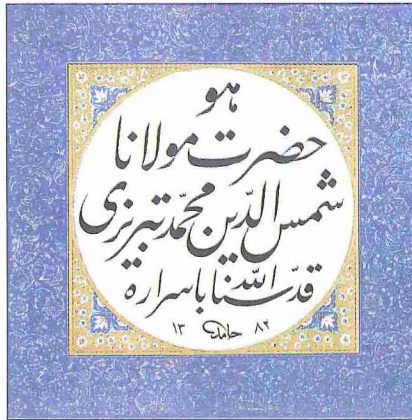 هو
حضرت مولانا
شمس الدّین محمّد تبریزی
قدّسنا اللّه باسراره
١٣ حامد ٨٢